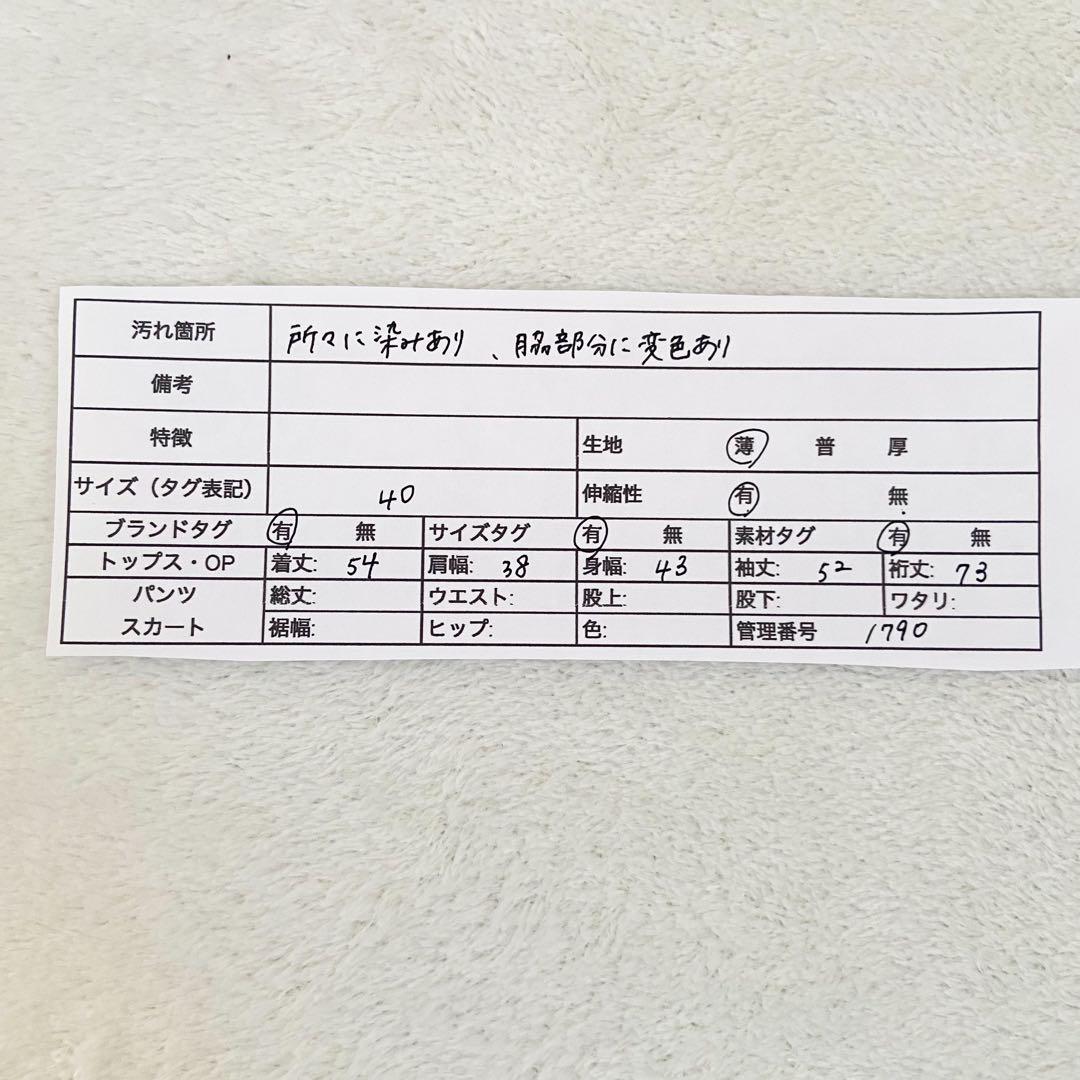 汚れ箇所 所々に染みあり、脇部分に変色あり
備考
特徴 生地 薄 普 厚
サイズ（タグ表記） 40 伸縮性 有 無
ブランドタグ 有 無 サイズタグ 有 無 素材タグ 有 無
トップス・OP 着丈: 54 肩幅: 38 身幅: 43 袖丈: 52 裄丈: 73
パンツ 総丈: ウエスト: 股上: 股下: ワタリ:
スカート 裾幅: ヒップ: 色: 管理番号 1790